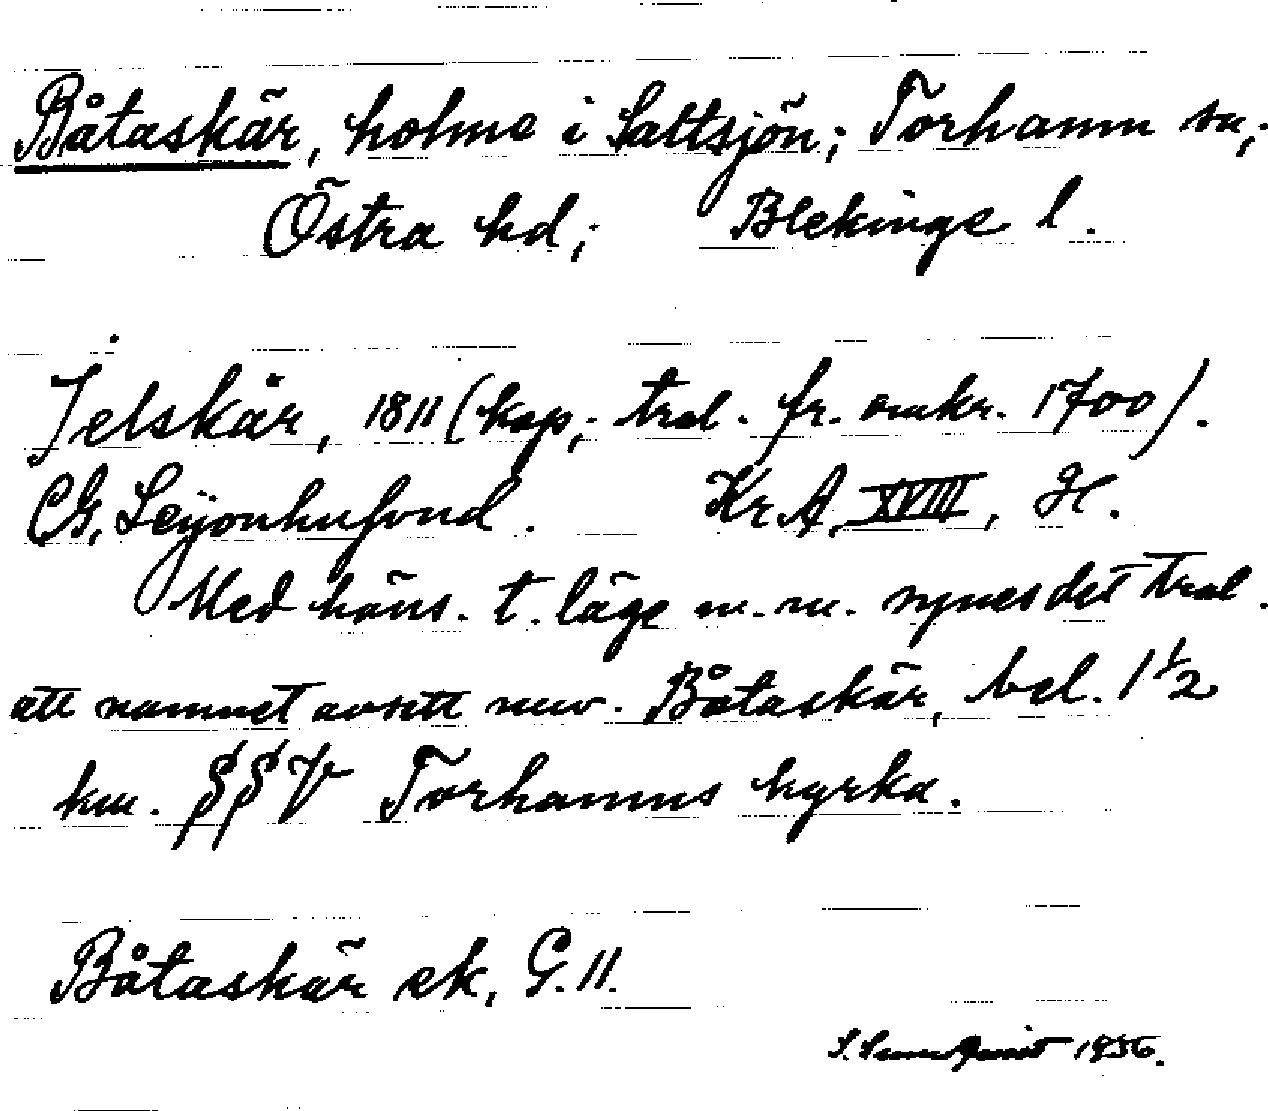 Båtaskär, holme i Saltsjön; Torhamn sn;
Östra hd; Blekinge l.
Jelskär, 1811 (kop; trol. fr. omkr. 1700).
CG. Leijonhufvud. Kr. A. XVIII, H.
Med häns. t. läge m. m. synes det trol.
att namnet avsett nuv. Båtaskär, bel. 1 1/2
km. SSV Torhamns kyrka.
Båtaskär ek, G. 11.
1956.